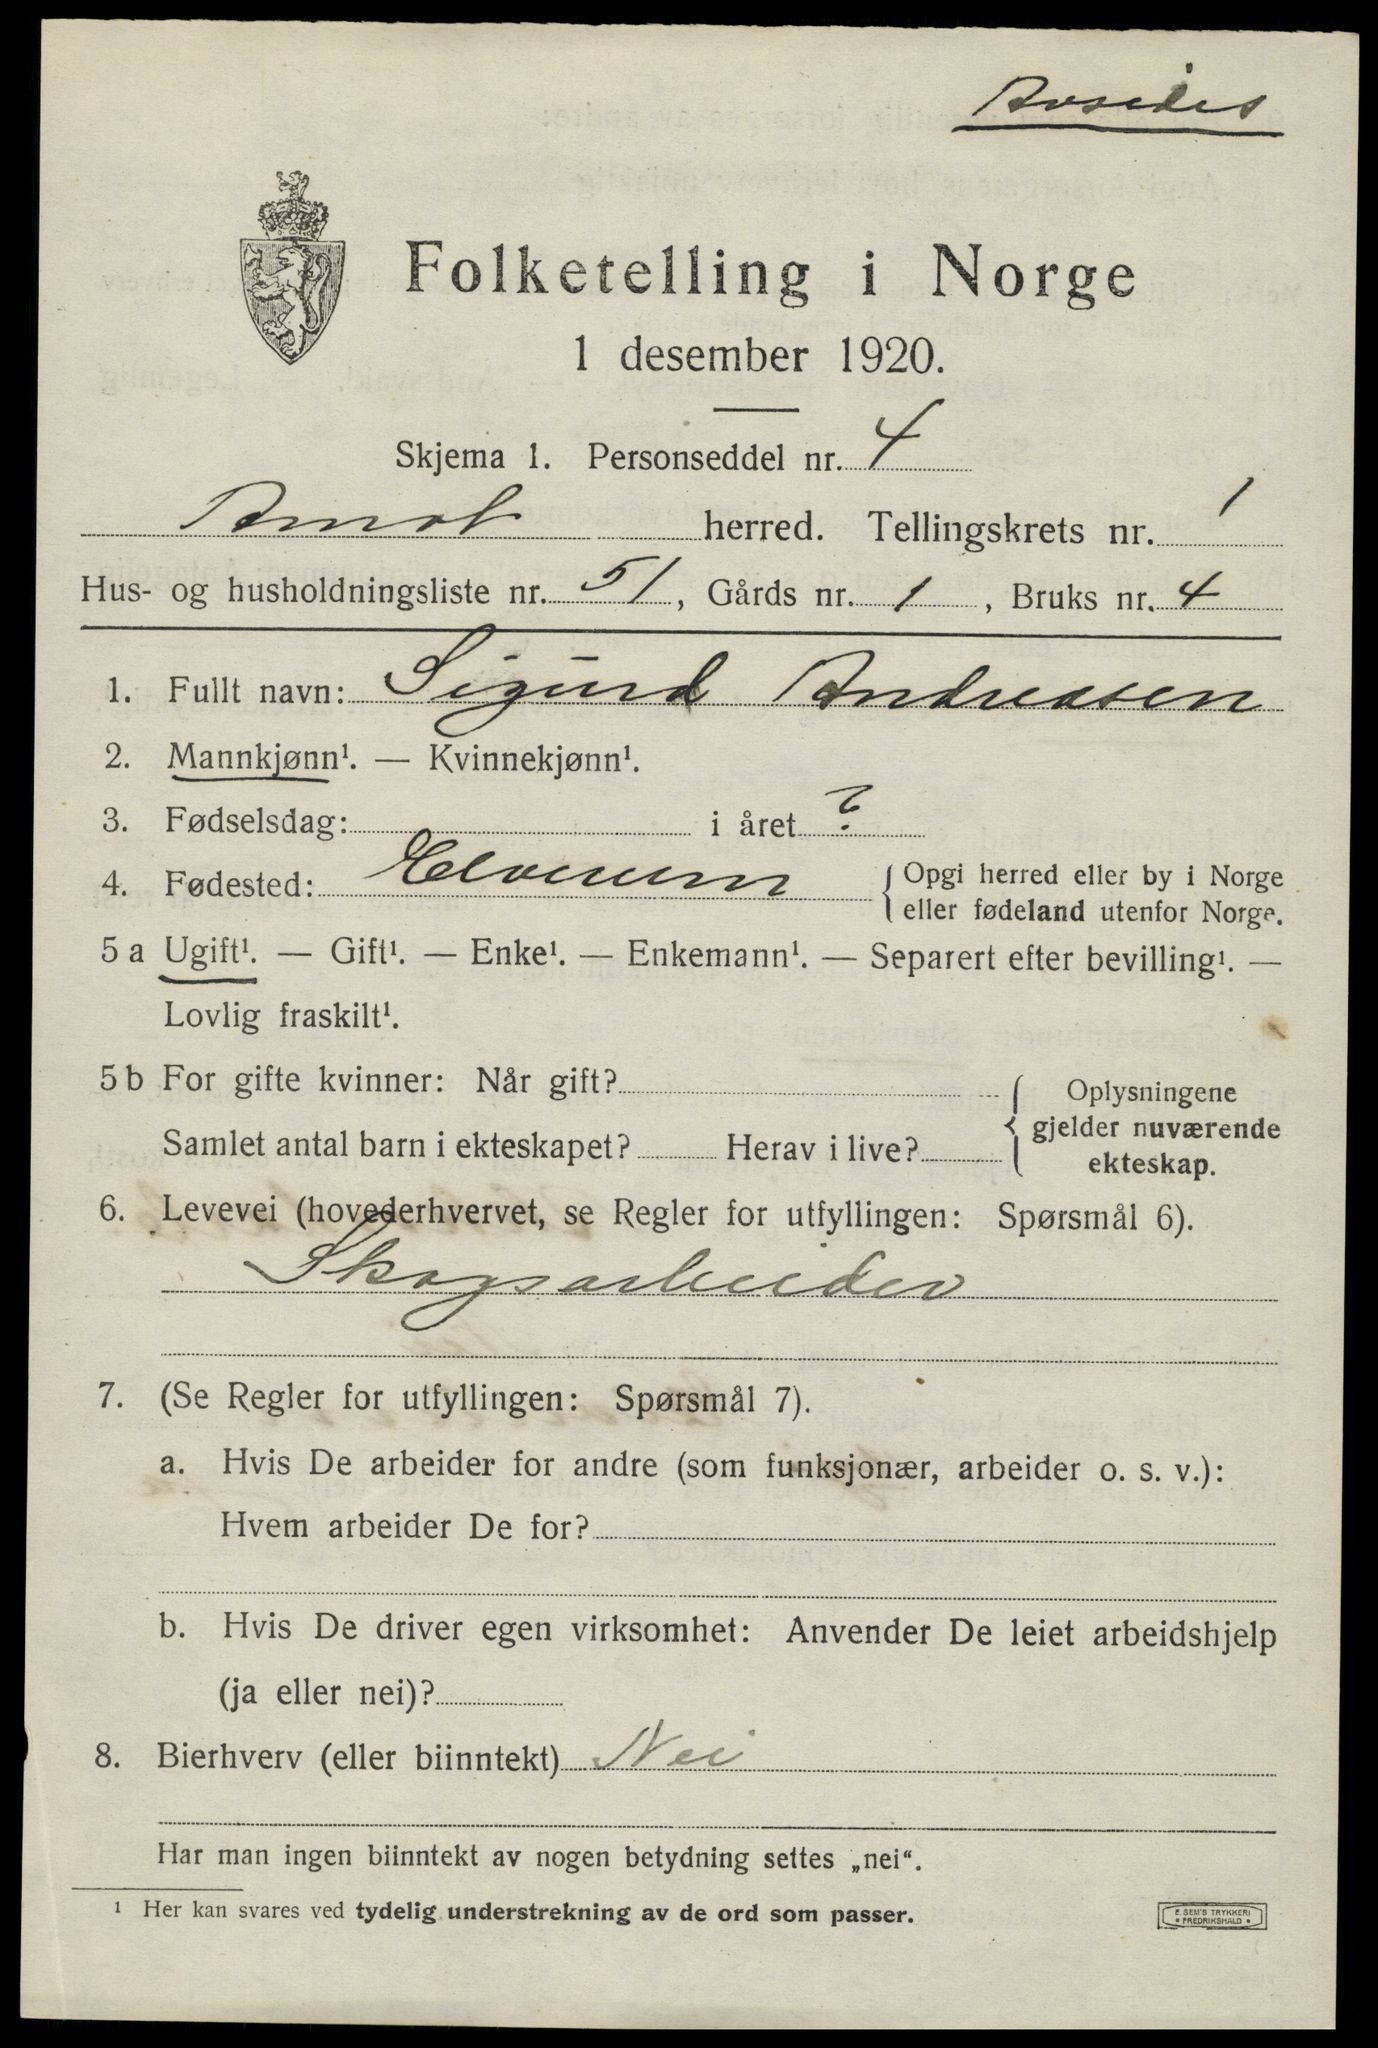 Avsides
Folketelling i Norge
1 desember 1920.
Skjema 1. Personseddel nr. 4
Amot herred. Tellingskrets nr. 1
Hus- og husholdningsliste nr. 51, Gårds nr. 1, Bruks nr. 4
1. Fullt navn: Sigurd Andreasen
2. Mannkjønn¹. — Kvinnekjønn¹.
3. Fødselsdag: i året ?
4. Fødested: Elverum { Opgi herred eller by i Norge
eller fødeland utenfor Norge.
5 a Ugift¹. — Gift¹. — Enke¹. — Enkemann¹. — Separert efter bevilling¹. —
Lovlig fraskilt¹.
5 b For gifte kvinner: Når gift? { Oplysningene
Samlet antal barn i ekteskapet? Herav i live? gjelder nuværende
ekteskap.
6. Levevei (hovederhvervet, se Regler for utfyllingen: Spørsmål 6).
Skogsarbeider
7. (Se Regler for utfyllingen: Spørsmål 7).
a. Hvis De arbeider for andre (som funksjonær, arbeider o. s. v.):
Hvem arbeider De for?
b. Hvis De driver egen virksomhet: Anvender De leiet arbeidshjelp
(ja eller nei)?
8. Bierhverv (eller biinntekt) Nei
Har man ingen biinntekt av nogen betydning settes „nei“.
¹ Her kan svares ved tydelig understrekning av de ord som passer.
E. SEM'S TRYKKERI
• FREDRIKSHALD •